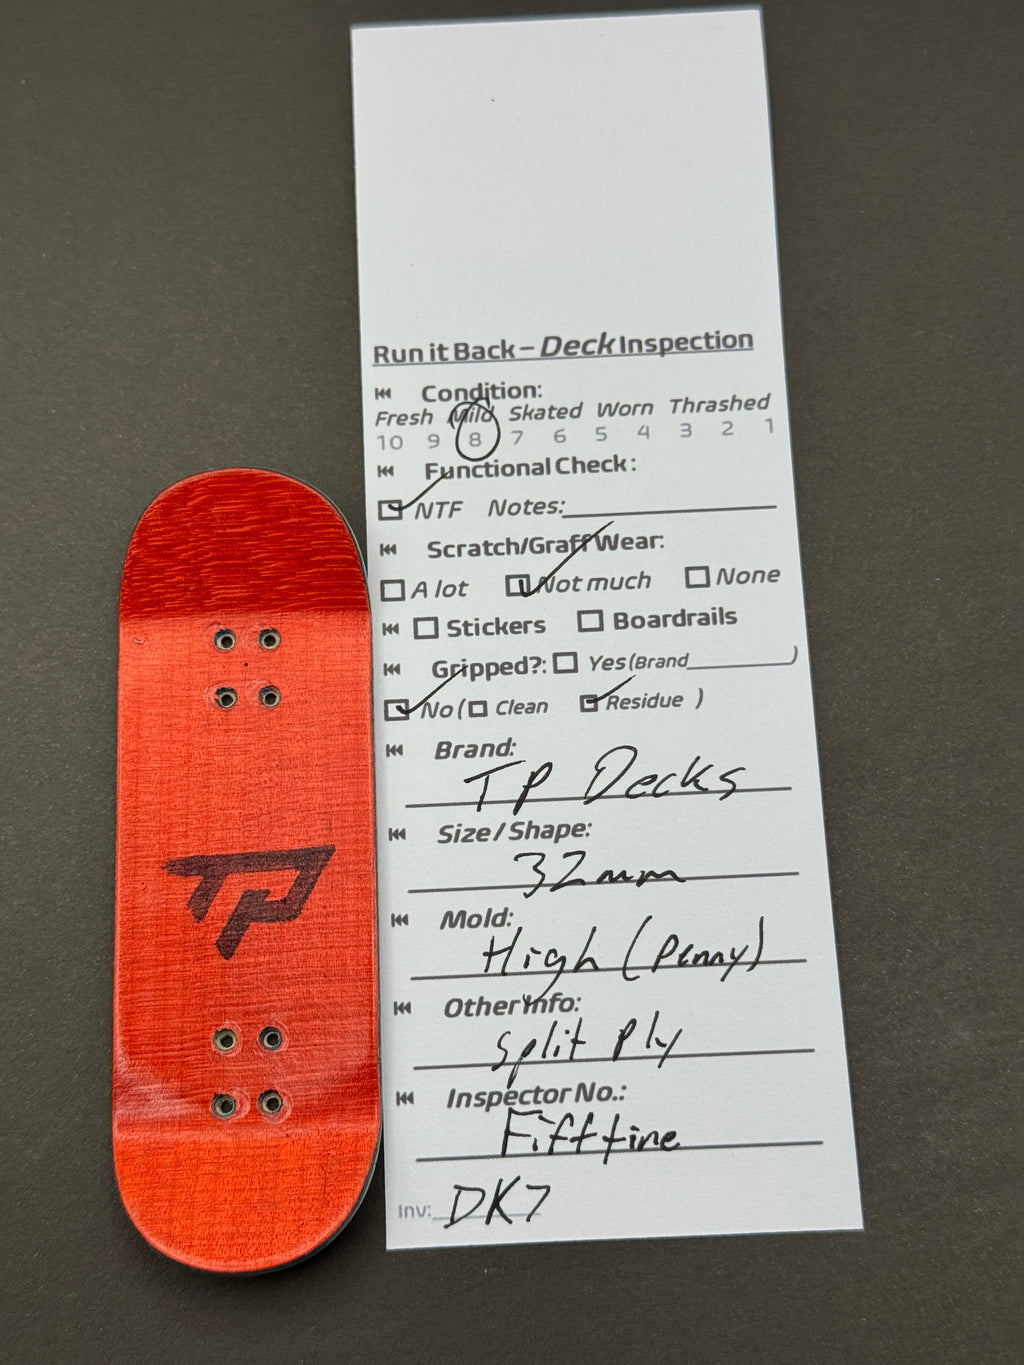 Run it Back – Deck Inspection
Condition:
Fresh Mild Skated Worn Thrashed
10 9 8 7 6 5 4 3 2 1
Functional Check:
NTF Notes:
Scratch/Graff Wear:
A lot Not much None
Stickers Boardrails
Gripped?: Yes (Brand )
No ( Clean Residue )
Brand:
TP Decks
Size / Shape:
32mm
Mold:
High (Penny)
Other Info:
Split Ply
Inspector No.:
Fifttine
Inv: DK7
TP